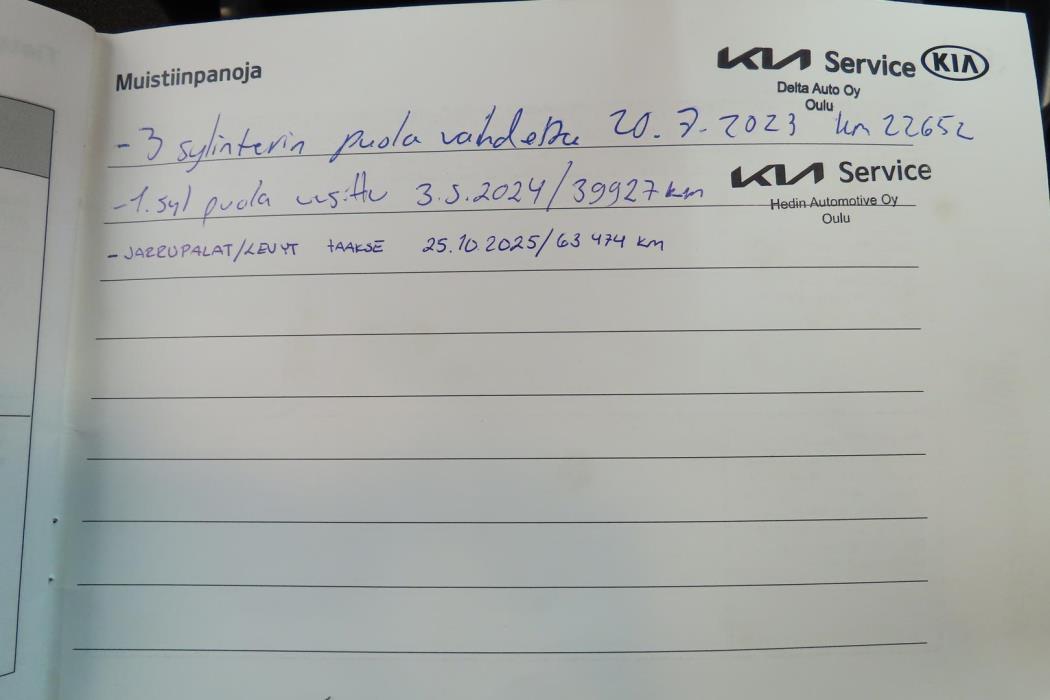 Muistiinpanoja
KIA Service KIA
Delta Auto Oy
Oulu
- 3 sylinterin puola vahdettu 20.7.2023 km 22652
KIA Service
Hedin Automotive Oy
Oulu
- 1. syl puola uusittu 3.5.2024/39927 km
- JARRUPALAT/LEVYT tAAKSE 25.10 2025/63 474 km